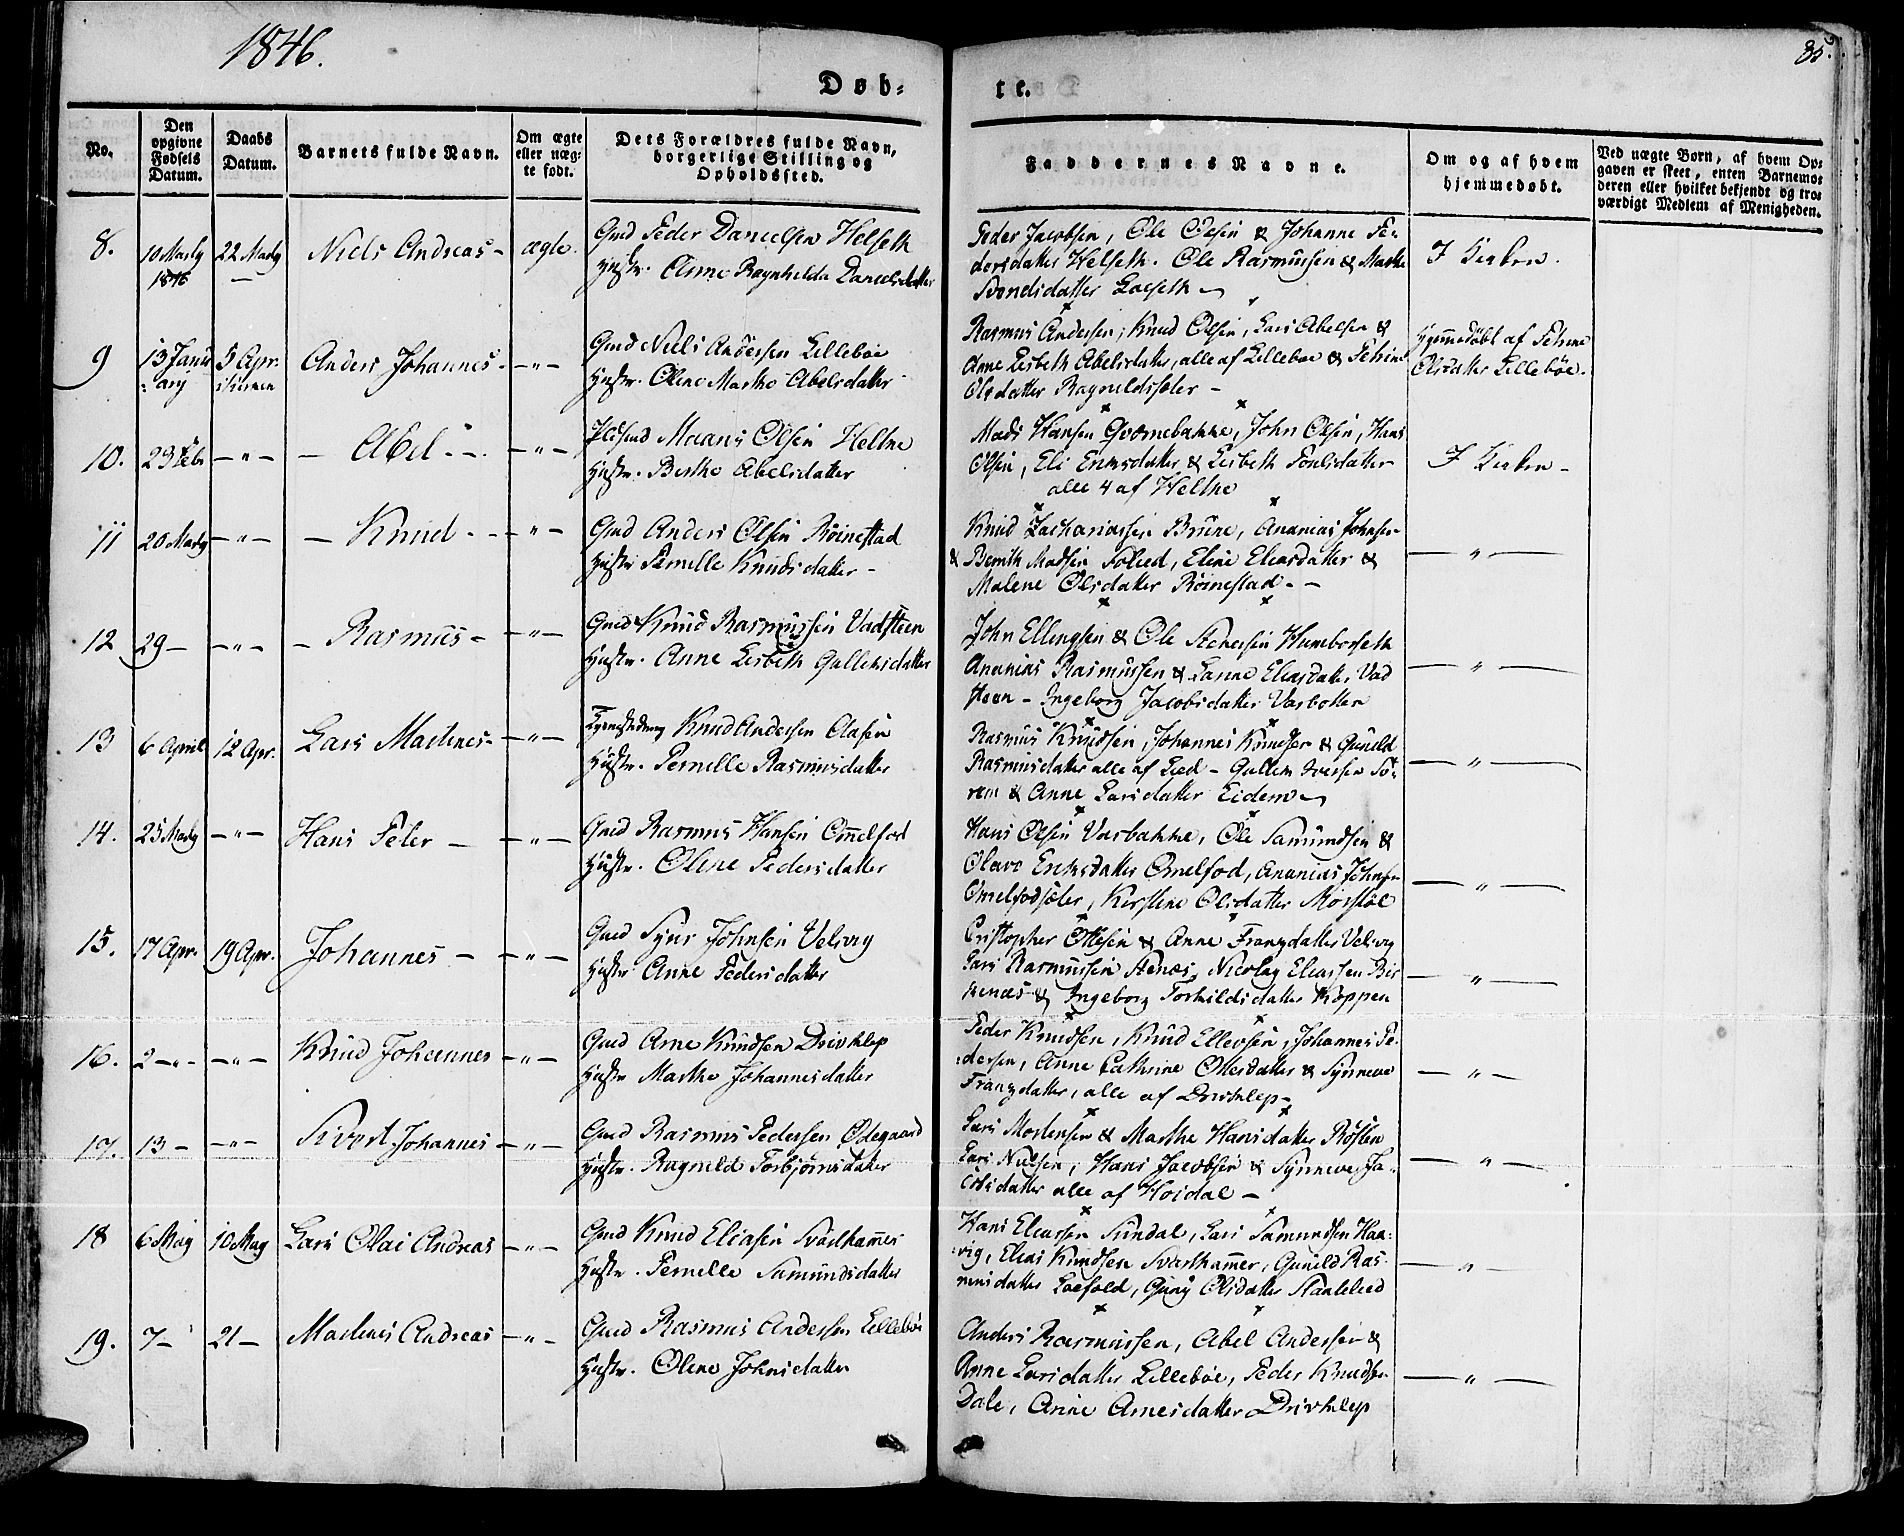 1846.
85.
Døb-
te.
No.
Den
opgivne
Fødsels
Datum.
Daabs
Datum.
Barnets fulde Navn.
Om ægte
eller uæg-
te født.
Dets Forældres fulde Navn,
borgerlige Stilling og
Opholdssted.
Faddernes Navne.
Om og af hvem
hjemmedøbt.
Ved uægte Børn, af hvem Op-
gaven er skeet, enten Barnemo-
deren eller hvilket bekjendt og tro-
værdigt Medlem af Menigheden.
8.
10 Marty
1846
22 Marty
—
Niels Andreas -
ægte.
Gmd Peder Danielsen Helseth
Hustr. Anne Ragnhilda Danielsdatter
Peder Jacobsen, Ole Olsen & Johanne Pe-
dersdatter Helseth. Ole Rasmussen & Marthe
Svendsdatter Loeseth
I Kirken.
9
13 Janu
ary
5 Apr.
Anders Johannes -
— " —
Gmd Niels Andersen Lillebøe
Hustr. Oline Marthe Abelsdatter
Rasmus Andersen, Knud Olsen, Lars Abelsen &
Anne Lisbeth Abelsdatter, alle af Lillebøe &
Olsdatter Ragnildssæter -
Hjemmedøbt af
Olsdatter Lillebøe.
10.
23 Febr
— " —
— Abel -
— " —
Maans Olsen Heltne
Hustr. Berthe Abelsdatter
Mads Hansen Qvernebakke, John Olsen, Hans
Olsen, Eli Eriksdatter & Lisbeth Poulsdatter
alle 4 af Heltne
I Kirken -
11
20 Marty
— " —
— Knud -
— " —
Gmd Anders Olsen Røinestad
Hustr Pernille Knudsdatter -
Knud Zachariassen Brune, Ananias Johnsen
& Bernth Madsen Folied, Eline Eliasdatter &
Malene Olsdatter Røinestad - -
— " —
12
29 —
— " —
— Rasmus -
— " —
Gmd Knud Rasmussen Vadsteen
Hustr. Anne Lisbeth Gullensdatter
John Ellingsen & Ole Steffensen Humborseth
Ananias Rasmussen & Hanne Eliasdatter Vad
steen - Ingeborg Jacobsdatter Varbotten
— " —
13
6 April
12 Apr.
Lars Martinus -
— " —
Knud Andersen
Hustr. Pernille Rasmusdatter
Rasmus Knudsen, Johannes Knudsen & Gunild
Rasmusdatter alle af Lied - Gullik Iversen Sø-
rem & Anne Larsdatter Eidem
— " —
14.
25 Marty
— " —
Hans Peter —
— " —
Gmd Rasmus Hansen Omelfod
Hustr. Oline Pedersdatter
Hans Olsen Varbakke, Ole Samundsen &
Olave Eriksdatter Omelfod, Ananias Johnsen
Omelfodsæter, Kirstine Olsdatter Morstøl
— " —
15.
17 Apr.
19 Apr.
Johannes —
— " —
Gmd Sjur Johnsen Velsvig
Hustr Anne Pedersdatter
Cristopher Ottesen & Anne Franzdatter Velsvig
Lars Rasmussen Stenæs, Nicolay Eliassen Bir
kenæs & Ingeborg Torkildsdatter Koppen
— " —
16.
2 — " -
— " —
Knud Johannes
— " —
Gmd Arne Knudsen Drivklep
Hustr Marthe Johannesdatter
Peder Knudsen, Knud Ellevsen, Johannes Pe-
dersen, Anne Cathrine Ottesdatter & Synneve
Franzdatter, alle af Drivklep -
— " —
17.
13 —
— " —
Sivert Johannes
— " —
Gmd Rasmus Pedersen Ødegaard
Hustr. Ragnild Torbjørnsdatter
Lars Mortensen & Marthe Hansdatter Røsten
Lars Nielsen, Hans Jacobsen & Synneve Ja-
cobsdatter alle af Hoidal —
— " —
18
6 May
10 May
Lars Olai Andreas
— " —
Gmd Knud Eliasen Svarthammer
Hustr. Pernille Samundsdatter
Hans Eliassen Sundal, Lars Samundsen Haa-
vig, Elias Knudsen Svarthammer, Gunild Ras-
musdatter Loefold, Guny Olsdatter
— " —
19.
7 —
21 —
Martinus Andreas
— " —
Gmd Rasmus Andersen Lillebøe
Hustr. Oline Johnsdatter
Anders Rasmussen, Abel Andersen &
Anne Larsdatter Lillebøe, Peder Knudsen
Dale, Anne Arnesdatter Drivklep
— " —